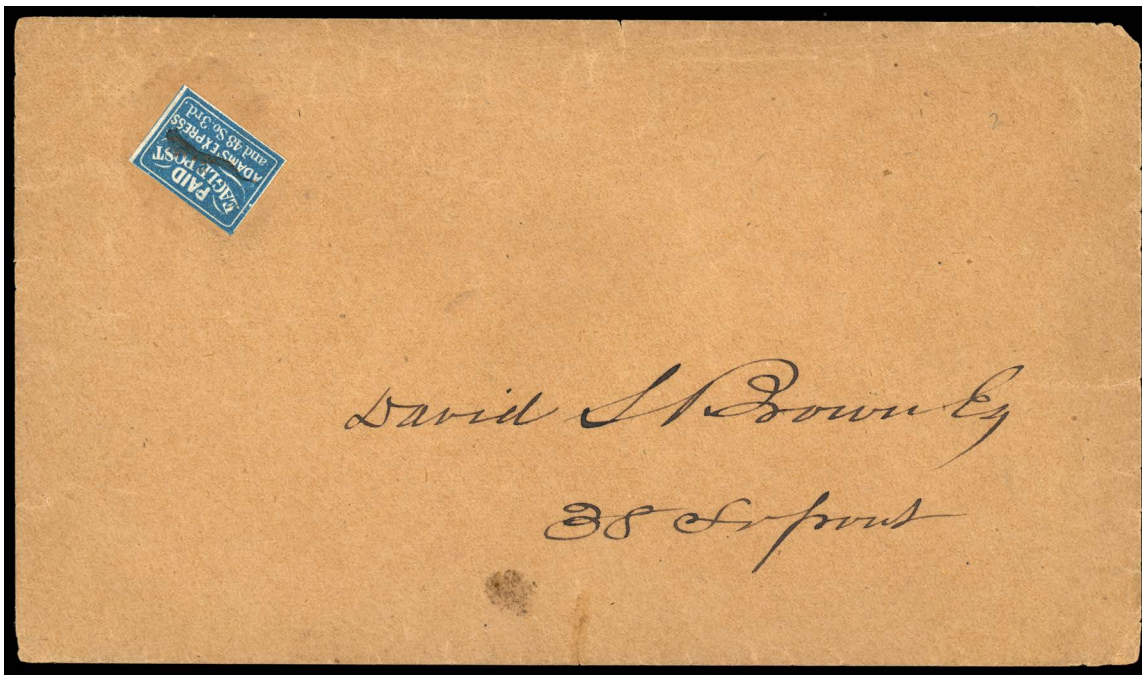 PAID
EAGLE POST
ADAMS' EXPRESS
and 48 So: 3rd.
David S Brown Esq
38 So front